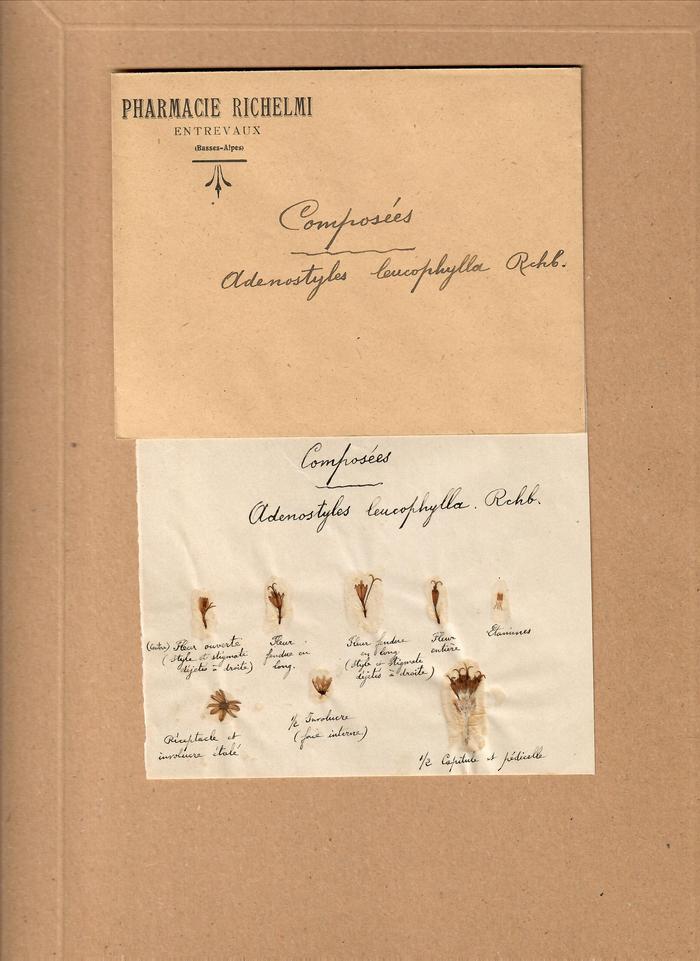 PHARMACIE RICHELMI
ENTREVAUX
(Basses-Alpes)
Composées
Adenostyles leucophylla Rchb.
Composées
Adenostyles leucophylla. Rchb.
(Centre) Fleur ouverte
(style et stigmate
déjetés à droite)
Fleur
fendue en
long.
Fleur fendue
en long
(Style et stigmate
déjetés à droite)
Fleur
entière
Etamines
Réceptacle et
involucre étalé
1/2 Involucre
(face interne)
1/2 Capitule et pédicelle